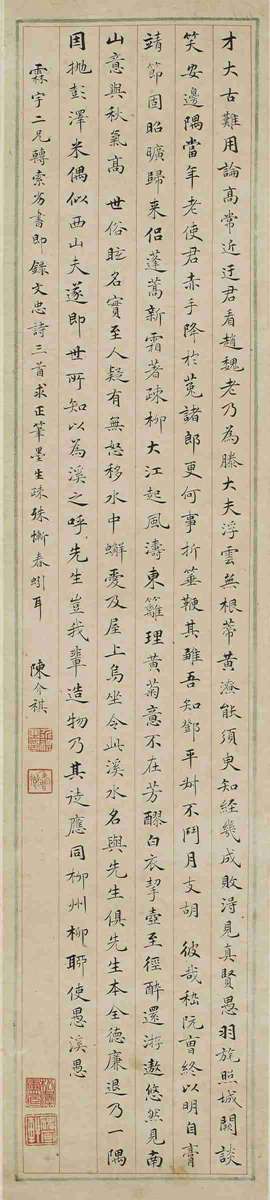 才大古難用論高常近迂君看趙魏老乃為滕大夫浮雲無根蒂黃潦能須臾知經幾成敗得見真賢愚羽旄照城闕談
笑安邊隅當年老使君赤手降於菟諸郎更何事折箠鞭其雛吾知鄧平叔不鬥月支胡 彼哉嵇阮曹終以明自膏
靖節固昭曠歸來侶蓬蒿新霜著疎柳大江起風濤東籬理黃菊意不在芳醪白衣挈壺至徑醉還游遨悠然見南
山意與秋氣高 世俗眩名實至人疑有無怒移水中蠏愛及屋上烏坐令此溪水名與先生俱先生本全德廉退乃一隅
因拋彭澤米偶似西山夫遂即世所知以為溪之呼先生豈我輩造物乃其徒應同柳州柳聊使愚溪愚
霖宇二兄轉索劣書即錄文忠詩三首求正筆墨生疎殊慚春蚓耳
陳介祺